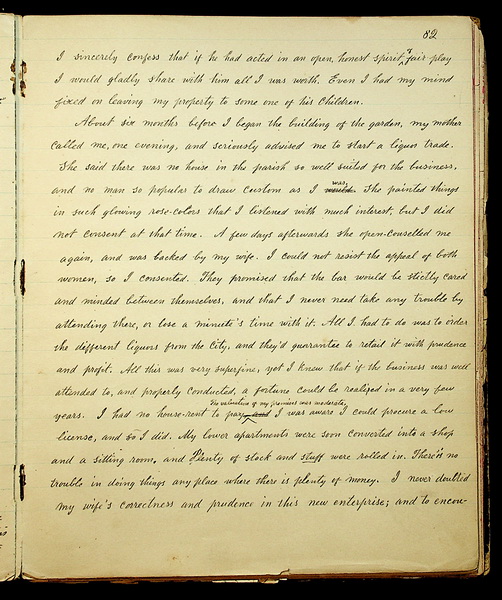 82
I sincerely confess that if he had acted in an open, honest spirit, & fair play
I would gladly share with him all I was worth. Even I had my mind
fixed on leaving my property to some one of his children.
About six months before I began the building of the garden, my mother
called me, one evening, and seriously advised me to start a liquor trade.
She said there was no house in the parish so well suited for the business,
and no man so popular to draw custom as I would was. She painted things
in such glowing rose-colors that I listened with much interest, but I did
not consent at that time. A few days afterwards she open-couselled me
again, and was backed by my wife. I could not resist the appeal of both
women, so I consented. They promised that the bar would be stictly cared
and minded between themselves, and that I never need take any trouble by
attending there, or lose a minute's time with it. All I had to do was to order
the different liquors from the city, and they'd guarantee to retail it with prudence
and profit. All this was very superfine, yet I knew that if the business was well
attended to, and properly conducted, a fortune could be realized in a very few
The valuation of my premises was moderate,
years. I had no house-rent to pay, and I was aware I could procure a low
license, and so I did. My lower apartments were soon converted into a shop
and a sitting room, and Plenty of stock and stuff were rolled in. There's no
trouble in doing things any place where there is plenty of money. I never doubted
my wife's correctness and prudence in this new enterprise; and to encou-